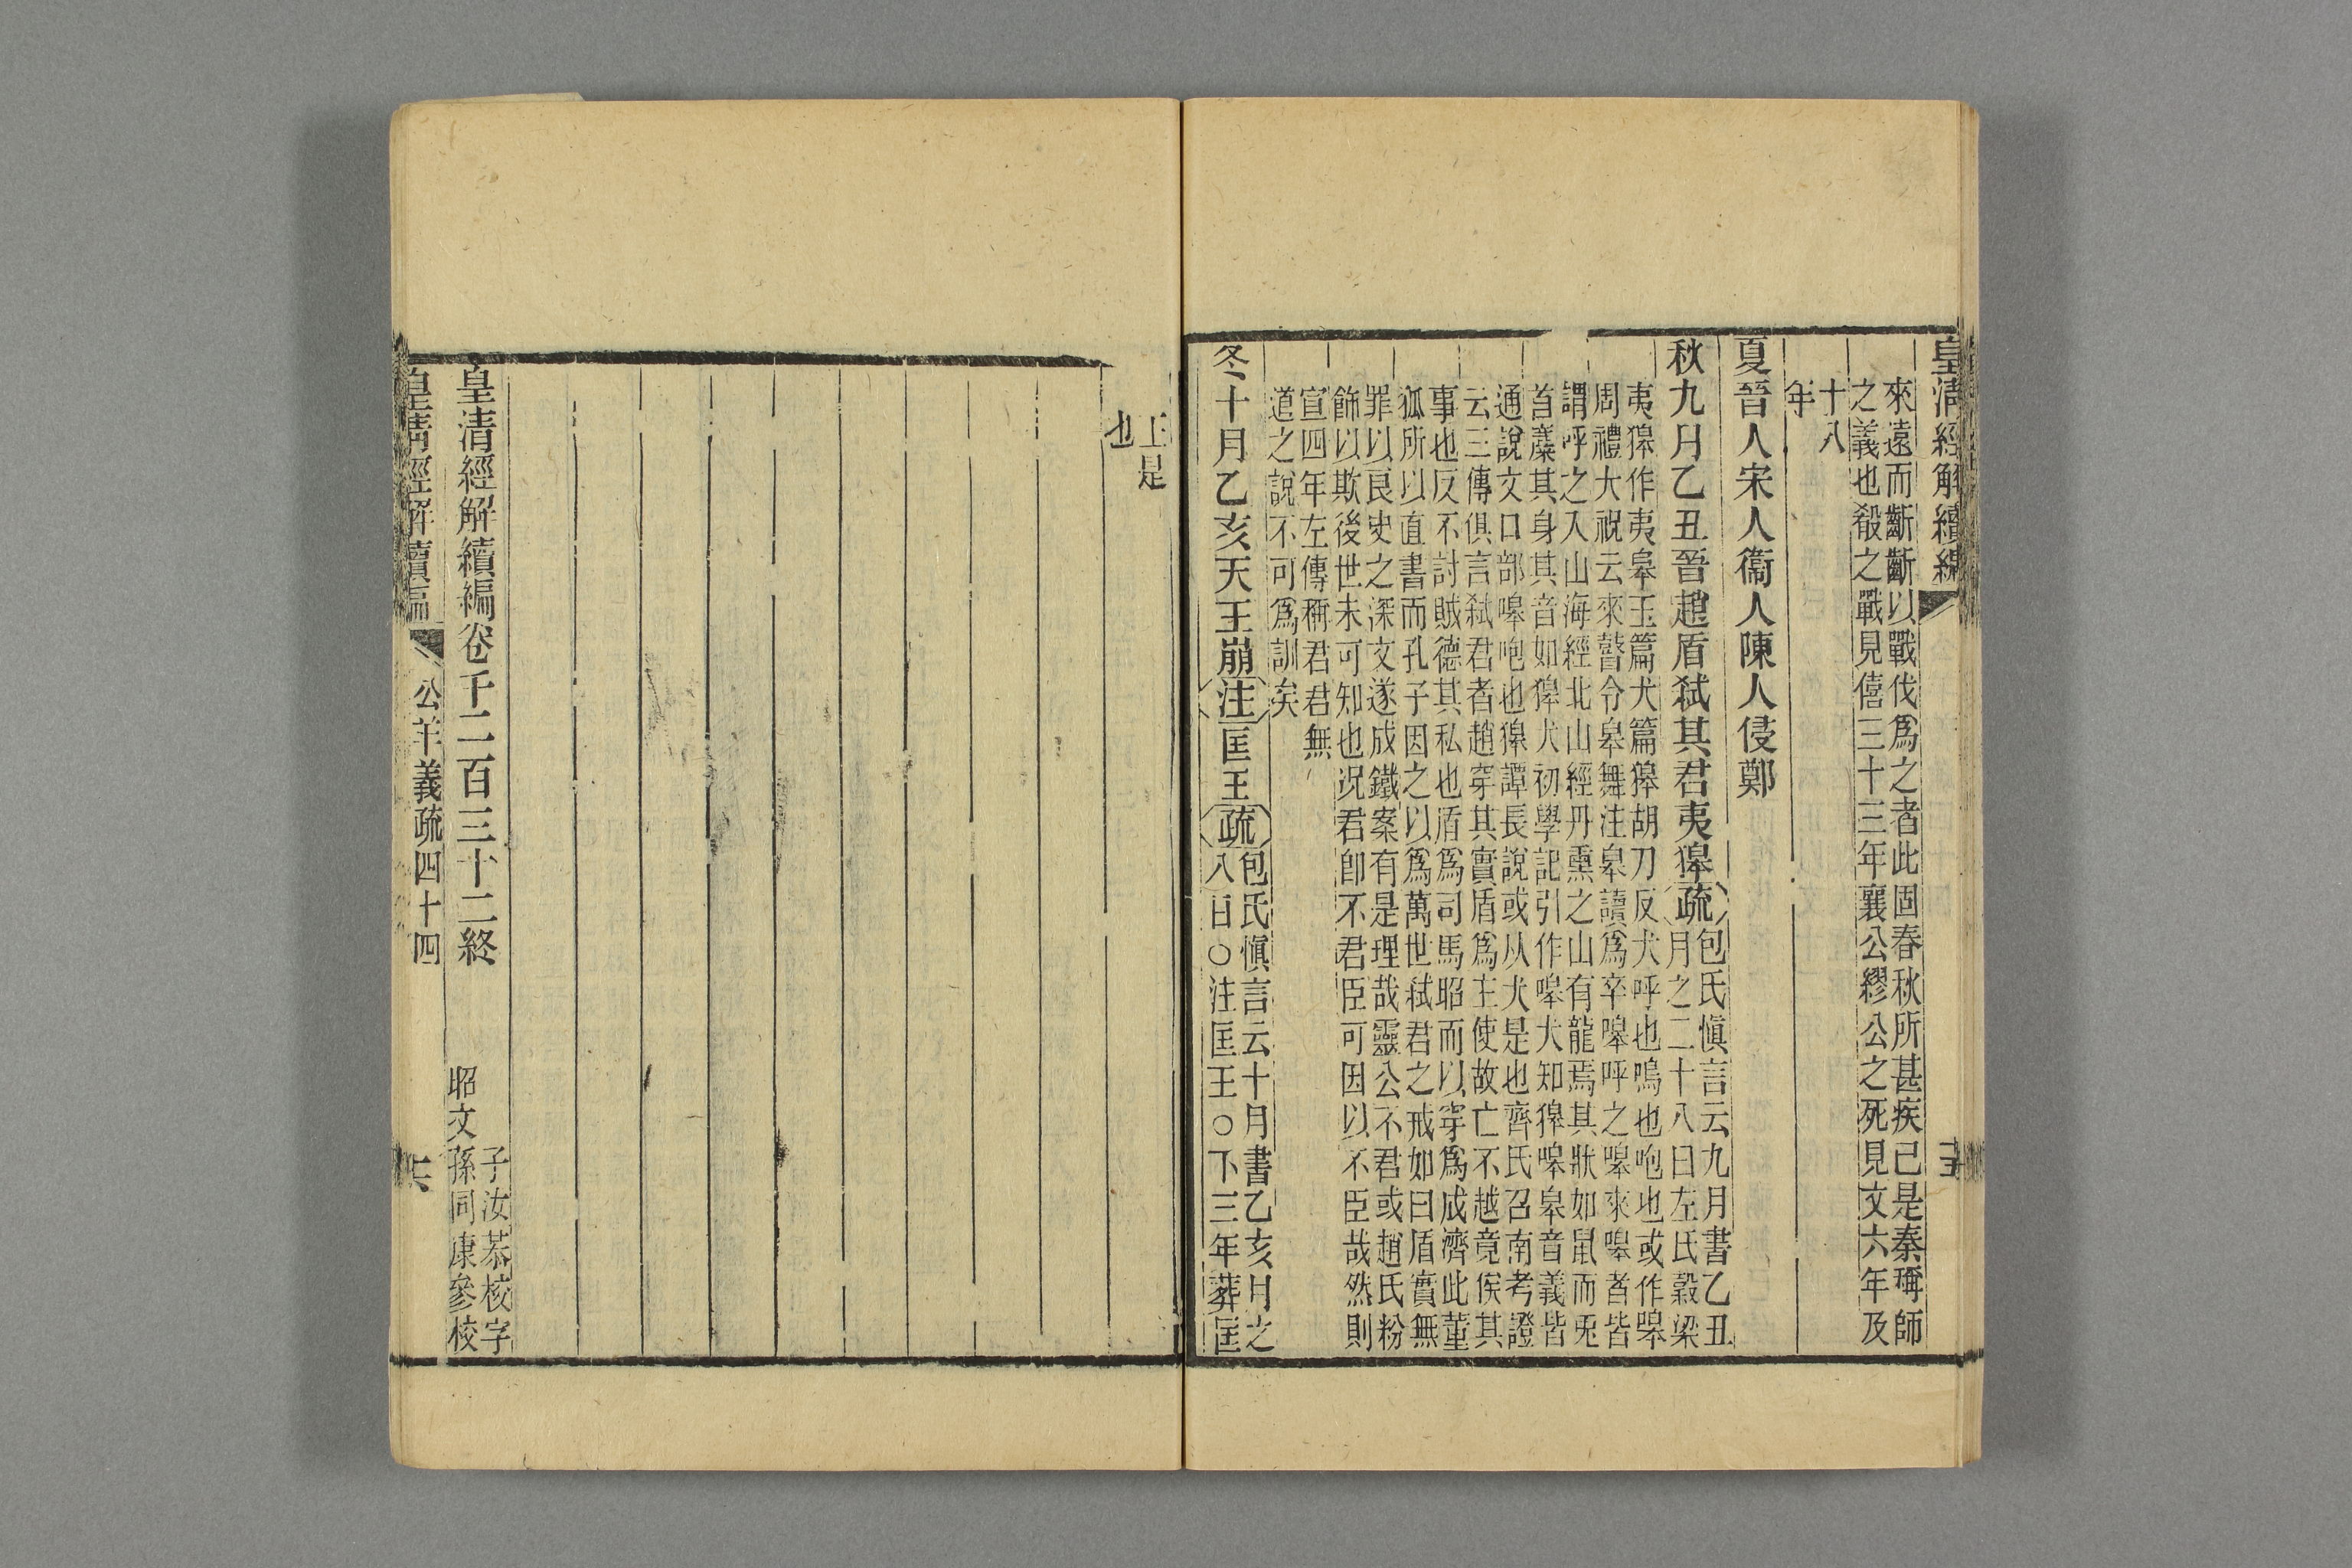 皇清經解續編
來遠而斷斷以戰伐爲之者此固春秋所甚疾已是秦稱師
之義也殽之戰見僖三十三年襄公繆公之死見文六年及
十八
年
夏晉人宋人衞人陳人侵鄭
秋九月乙丑晉趙盾弒其君夷獋疏包氏愼言云九月書乙丑
月之二十八日左氏穀梁
夷獋作夷皋玉篇犬篇獋胡刀反犬呼也嗚也咆也或作嘷
周禮大祝云來瞽令皋舞注皋讀爲卒嘷呼之嘷來嘷者皆
謂呼之入山海經北山經丹熏之山有龍焉其狀如鼠而兎
首麋其身其音如獋犬初學記引作嘷犬知獋嘷皋音義皆
通說文口部嘷咆也獋譚長說或从犬是也齊氏召南考證
云三傳俱言弒君者趙穿其實盾爲主使故亡不越竟俟其
事也反不討賊德其私也盾爲司馬昭而以穿爲成濟此董
狐所以直書而孔子因之以爲萬世弒君之戒如曰盾實無
罪以良史之深文遂成鐵案有是理哉靈公不君或趙氏粉
飾以欺後世未可知也况君卽不君臣可因以不臣哉然則
宣四年左傳稱君君無
道之說不可爲訓矣
冬十月乙亥天王崩注匡王疏包氏愼言云十月書乙亥月之
八日○注匡王○下三年葬匡
王是
也
皇清經解續編卷千二百三十二終
子汝恭校字
昭文孫同康參校
皇清經解續編
公羊義疏四十四